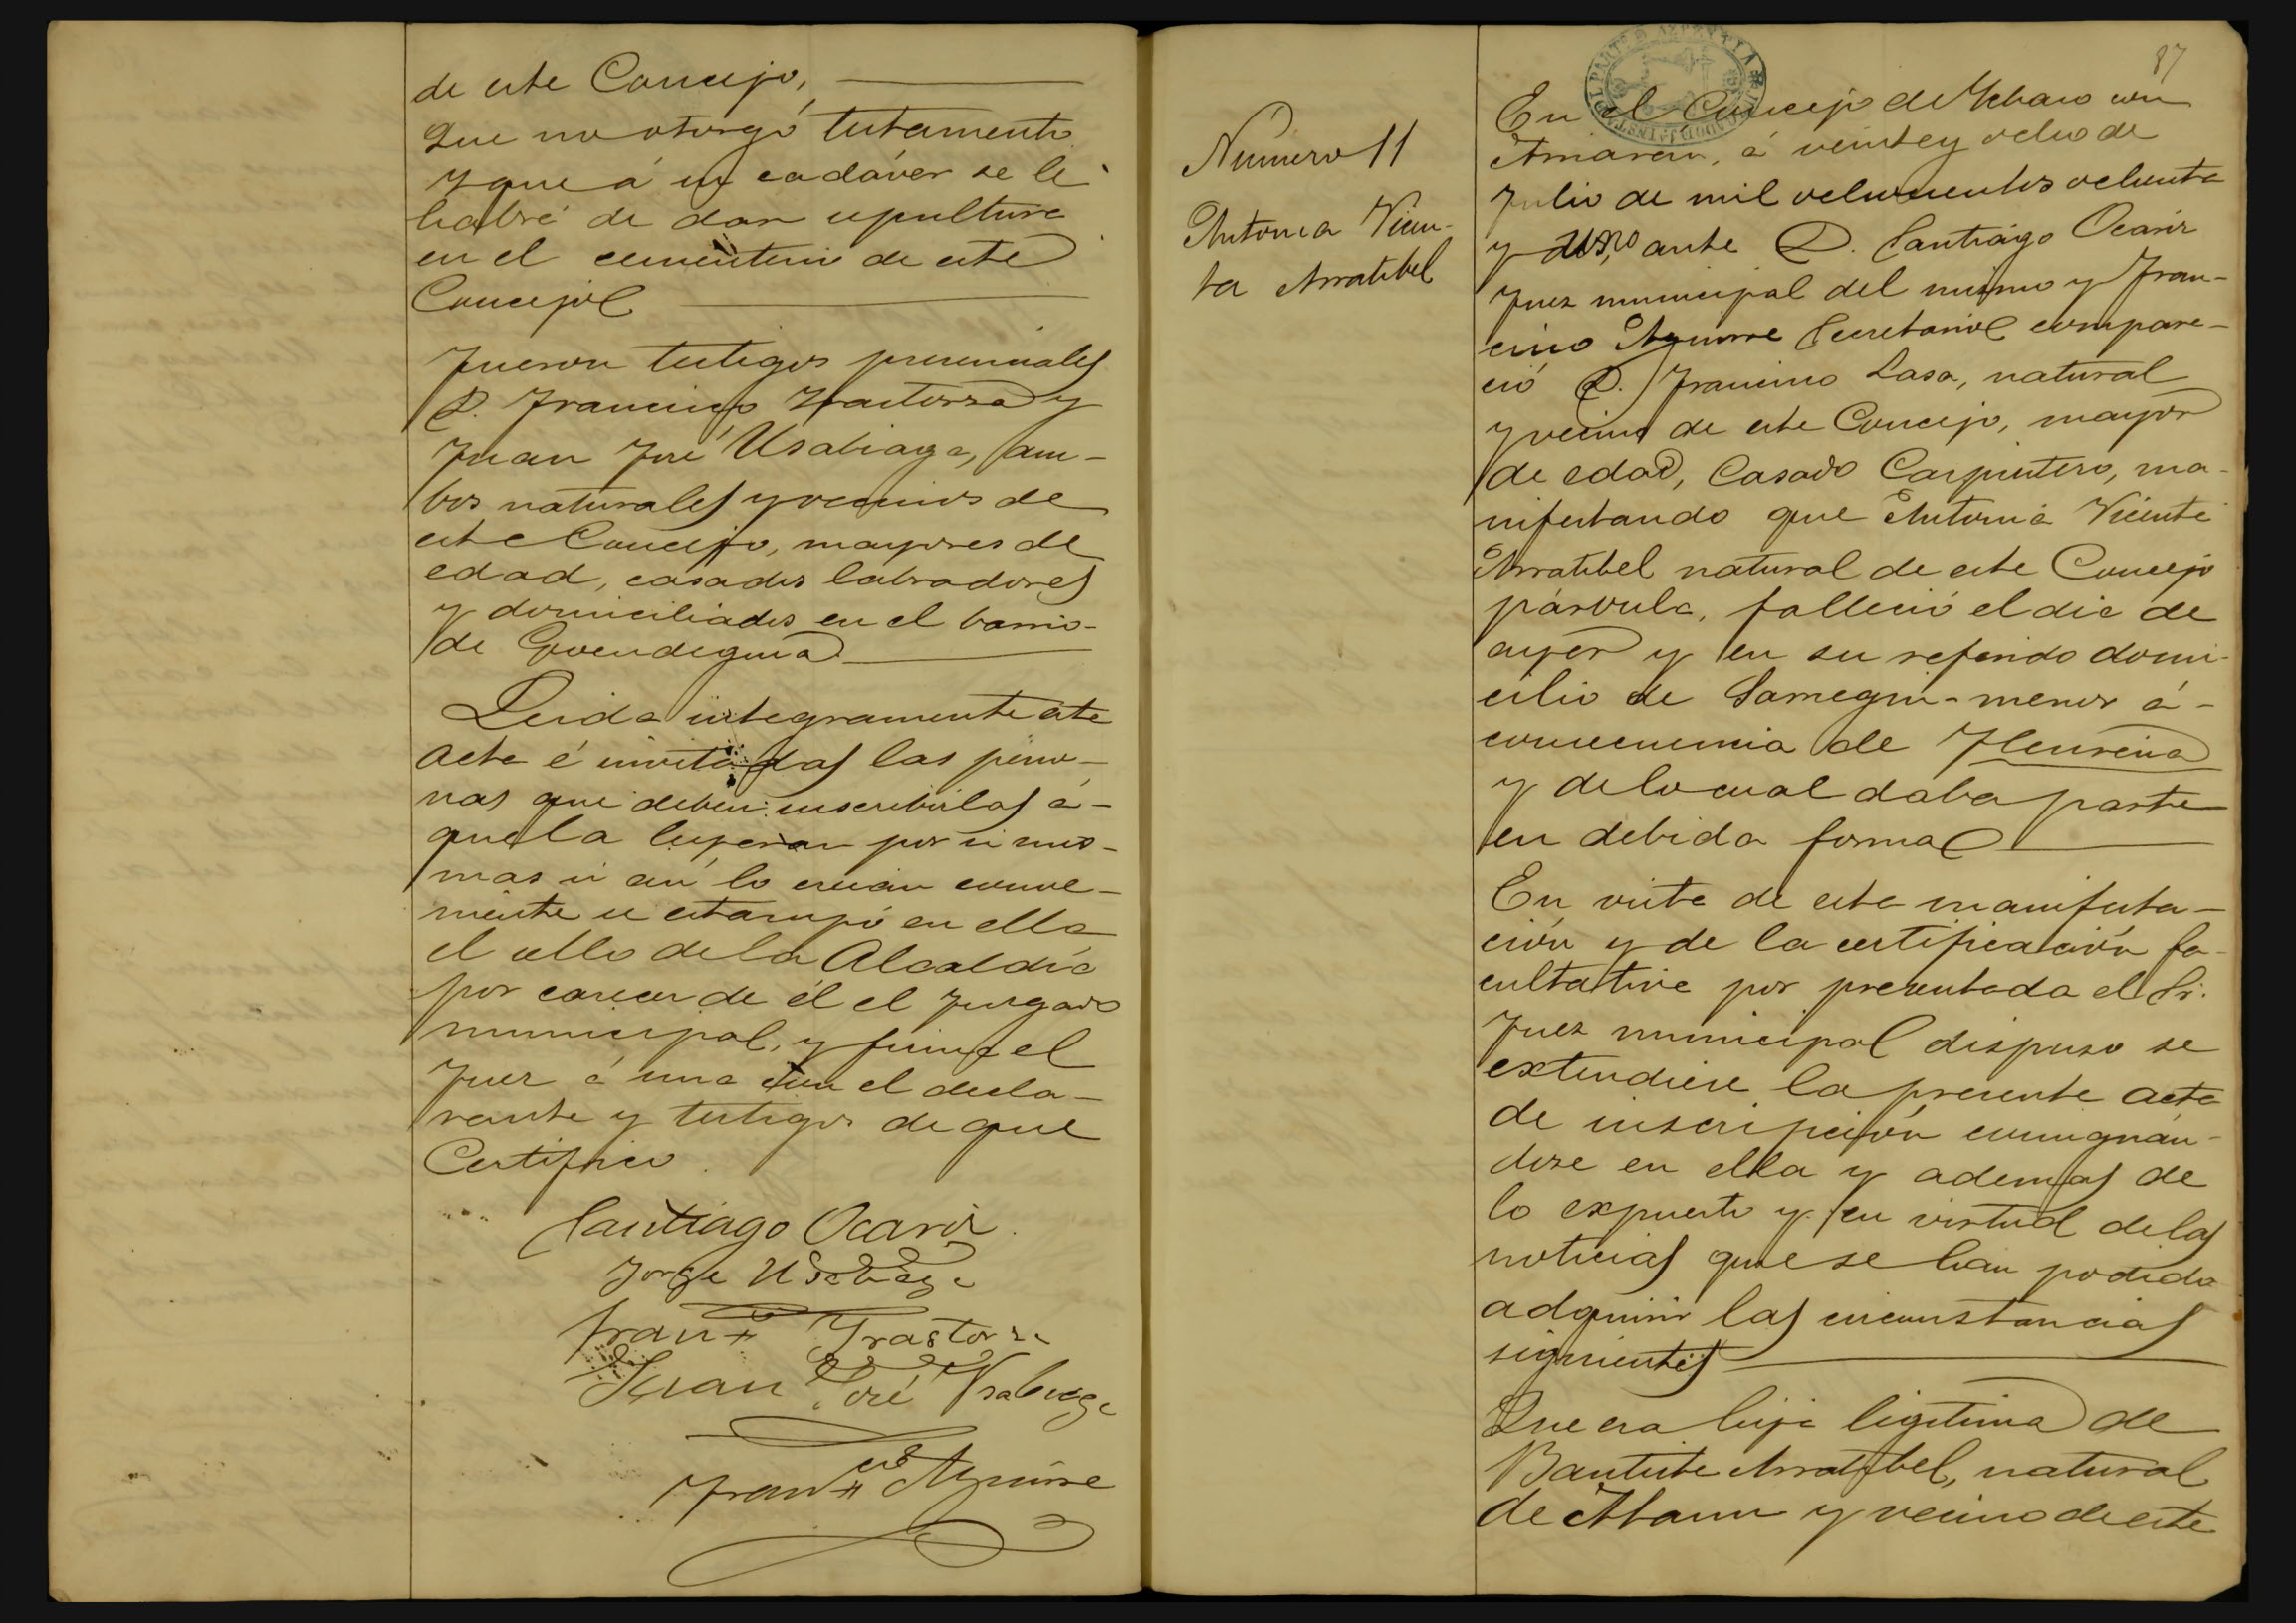 de este Concejo,
Que no otorgó testamento
y que á su cadáver se le
habrá de dar sepultura
en el cementerio de este
Concejo
Fueron testigos presenciales
D. Francisco Yrastorza y
Juan José Usabiaga, am-
bos naturales y vecinos de
este Concejo, mayores de
edad, casados labradores
y domiciliados en el barrio
de Goendeguia
Leida integramente este
acta é invitadas las perso-
nas que deben suscribirlas á
que la leyeran por si mis-
mas si asi lo creian conve-
niente se estampó en ella
el sello de la Alcaldía
por carecer de él el Juzgado
municipal, y firma el
Juez á una con el decla-
rante y testigos de que
Certifico.
Santiago Ocariz
Jorge Usabiaga
Fran.co Yrastorza
Juan José Usabiaga
Fran.co Aguirre
87
Número 11
Antonia Vicen-
ta Arratibel
En el Concejo de Ychaso con
Arriaran, á veinte y ocho de
Julio de mil ochocientos ochenta
y uno, ante D. Santiago Ocariz
Juez municipal del mismo y Fran-
cisco Aguirre Secretario compare-
ció D. Francisco Lasa, natural
y vecino de este Concejo, mayor
de edad, Casado Carpintero, ma-
nifestando que Antonia Vicenta
Arratibel natural de este Concejo
párvula, falleció el dia de
ayer y en su referido domi-
cilio de Sarregui-menor á
consecuencia de
y de lo cual daba parte
en debida forma
En vista de esta manifesta-
ción y de la certificación fa-
cultativa por presentada el Sr.
Juez municipal dispuso se
extendiese la presente acta
de inscripción consignán-
dose en ella y ademas de
lo expuesto y en virtud de las
noticias que se han podido
adquirir las circunstancias
siguientes
Que era hija legitima de
Bautista Arratibel, natural
de Ataun y vecino de este